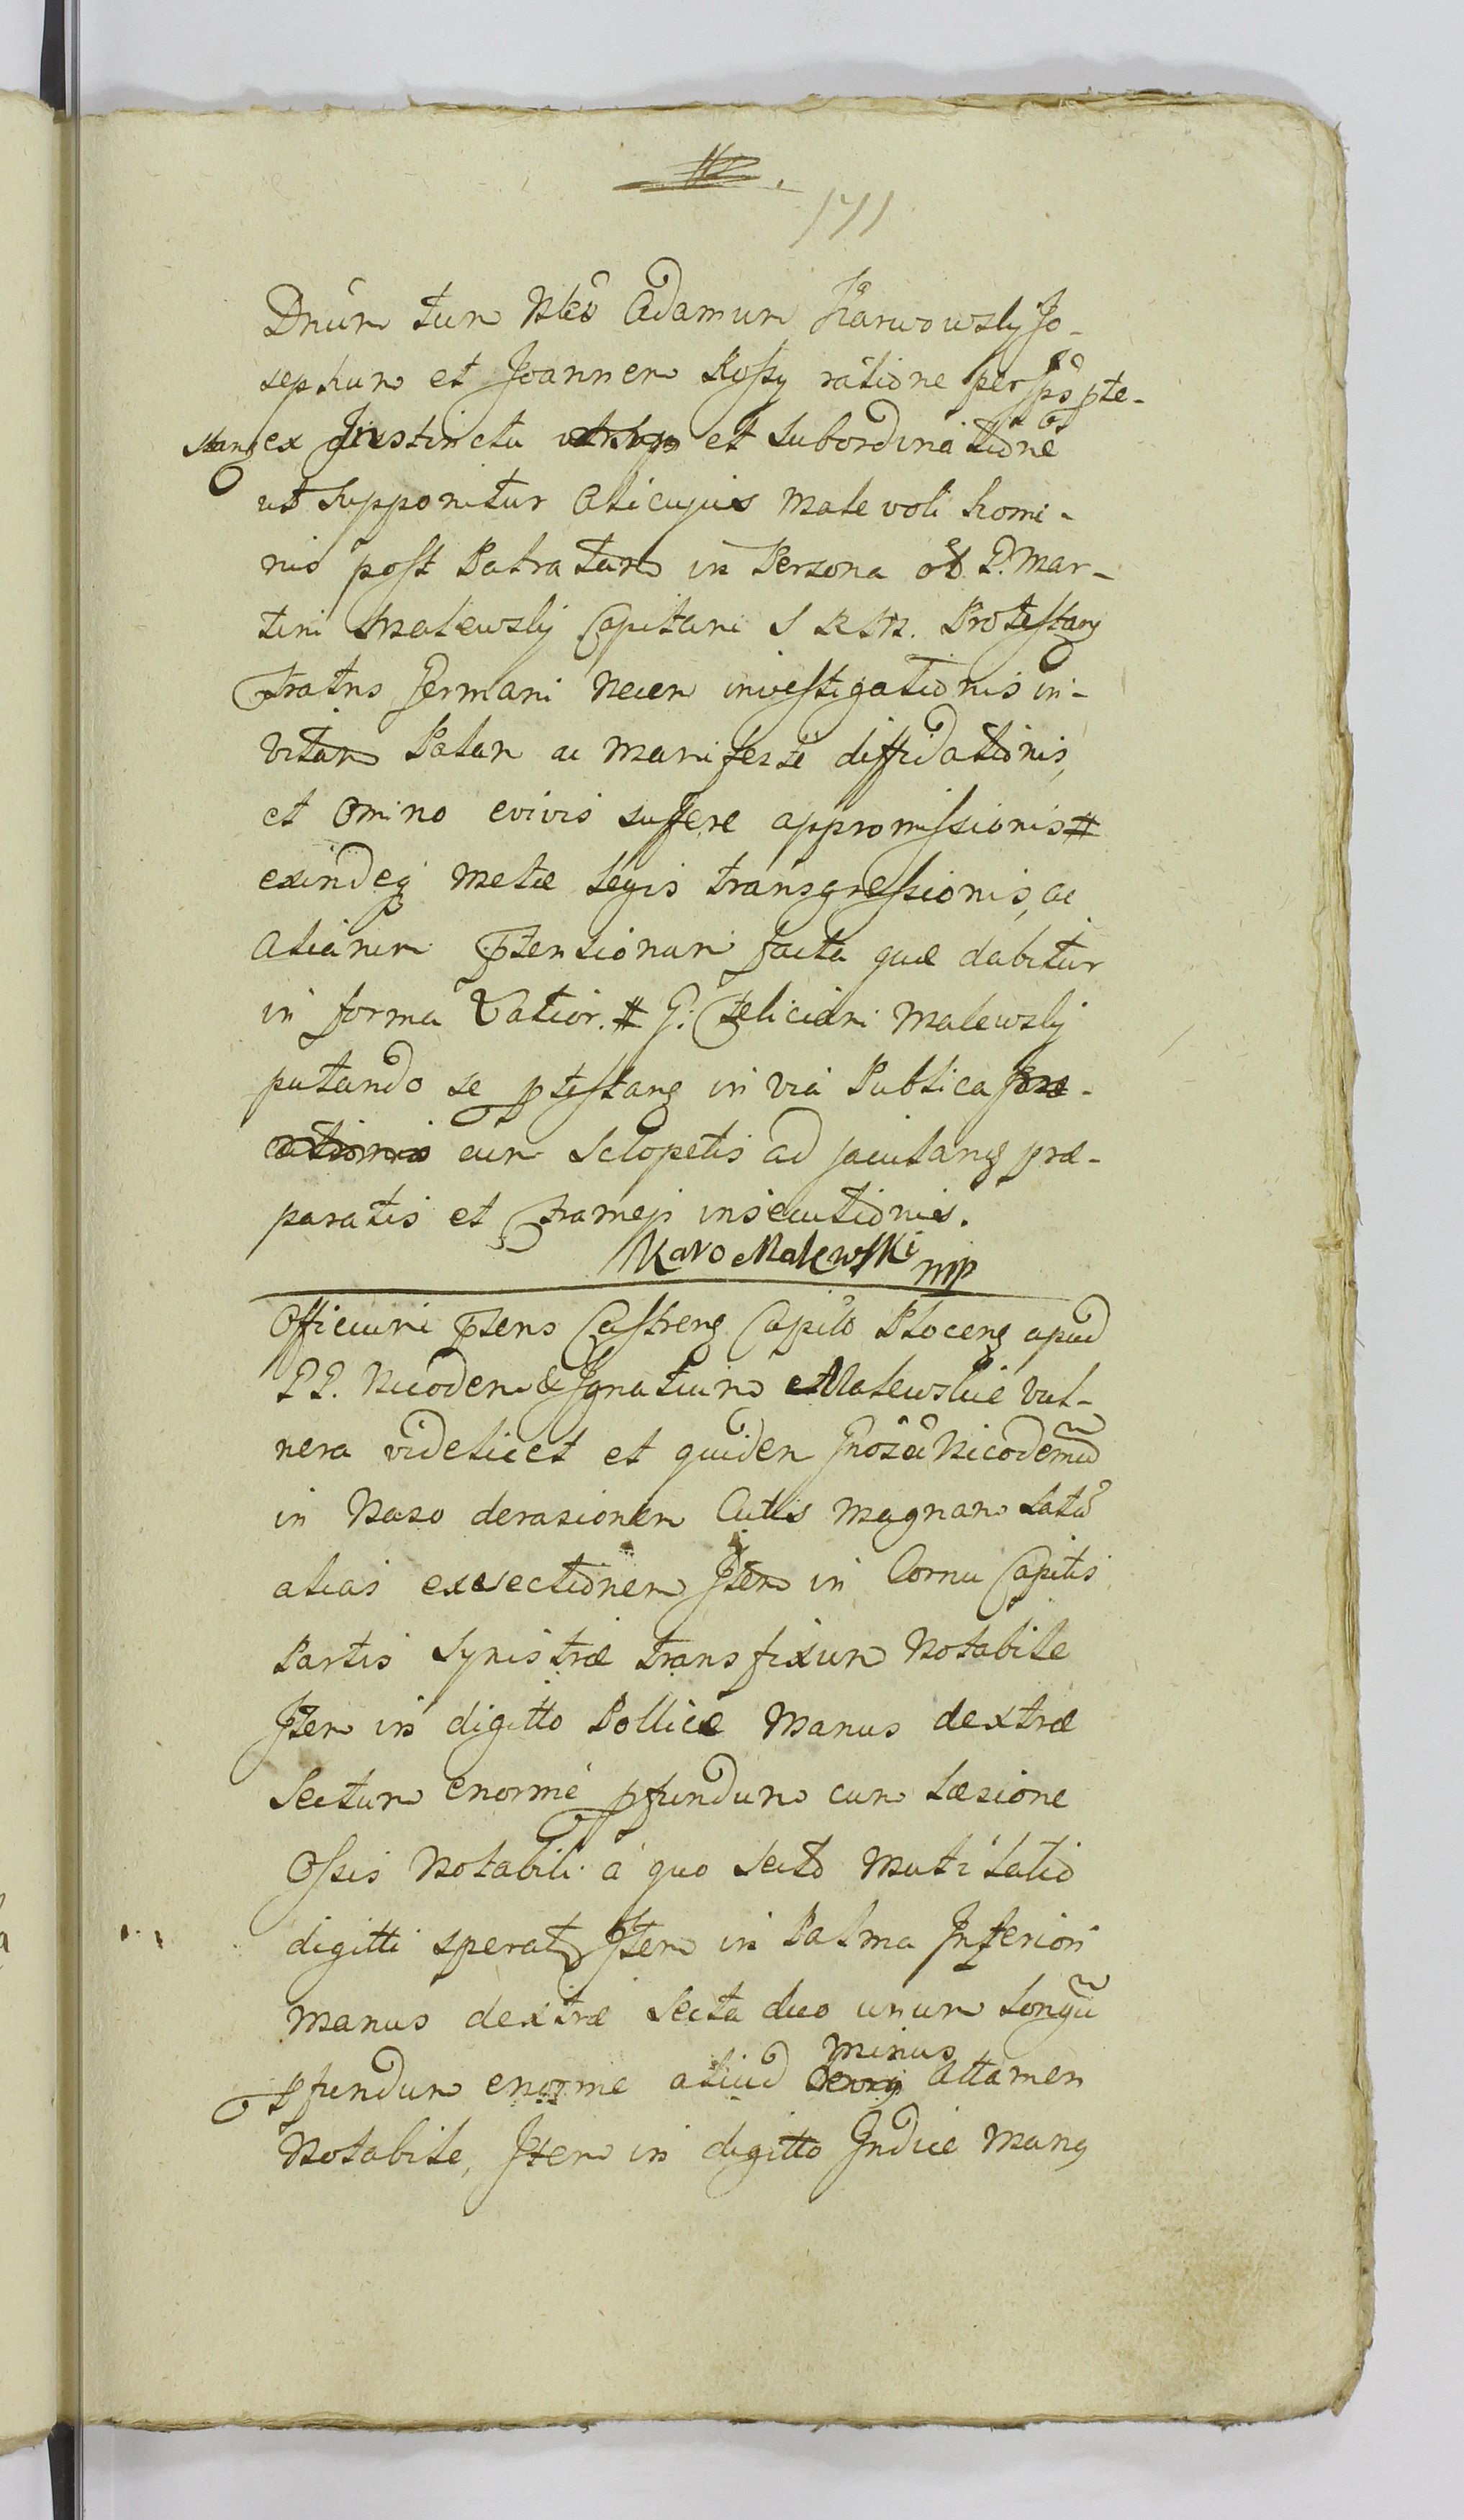 171
Dnum tum Nbles Adamum Karwowsky Jo-
sephum et Joannem Rossy ratione per ipsos pte-
stang ex Instinctu et subordinatione
ut supponitur alicujus malevoli homi-
nis post Patratam in Persona ol. P. Mar-
tini Malewsky Capitani S R M. Protestang
Fratris Germani Necem investigationis in-
vitam Palam ac manifeste diffidationis,
et omnino evivis suffere appromissionis #
exindeq metae legis transgressionis, ac
aliarum ptensionum facta quae dabitur
in forma Latior. # G: Feliciani Malewsky
putando se ptestang in via Publica
cum Sclopetis ad jaculang prae-
paratis et Frameis insecutionis.
Karo Malewski mp
Officium ptens Castreng Capitle Ploceng apud
P P. Nicodem & Ignatium Malewskie vul-
nera videlicet et quidem Gnosum Nicodemum
in Naso derasionem Cutis magnam latam
alias exsectionem Item in Cornu Capitis
Partis Synistrae transfixum Notabile
Item in digitto Pollice Manus dextrae
Sectum enorme pfundum cum laesione
Ossis Notabili a quo secto Mutilatio
digitti speratr Item in Palma Inferiori
manus dextrae Secta duo unum longum
pfundum enorme aliud minus attamen
Notabile, Item in digitto Indice Mang